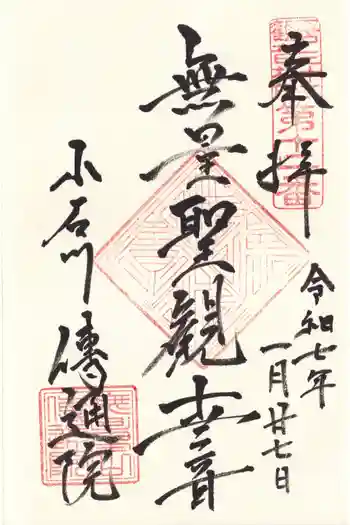 奉拝
令和七年
一月廿七日
無量聖観音
小石川
傳通院